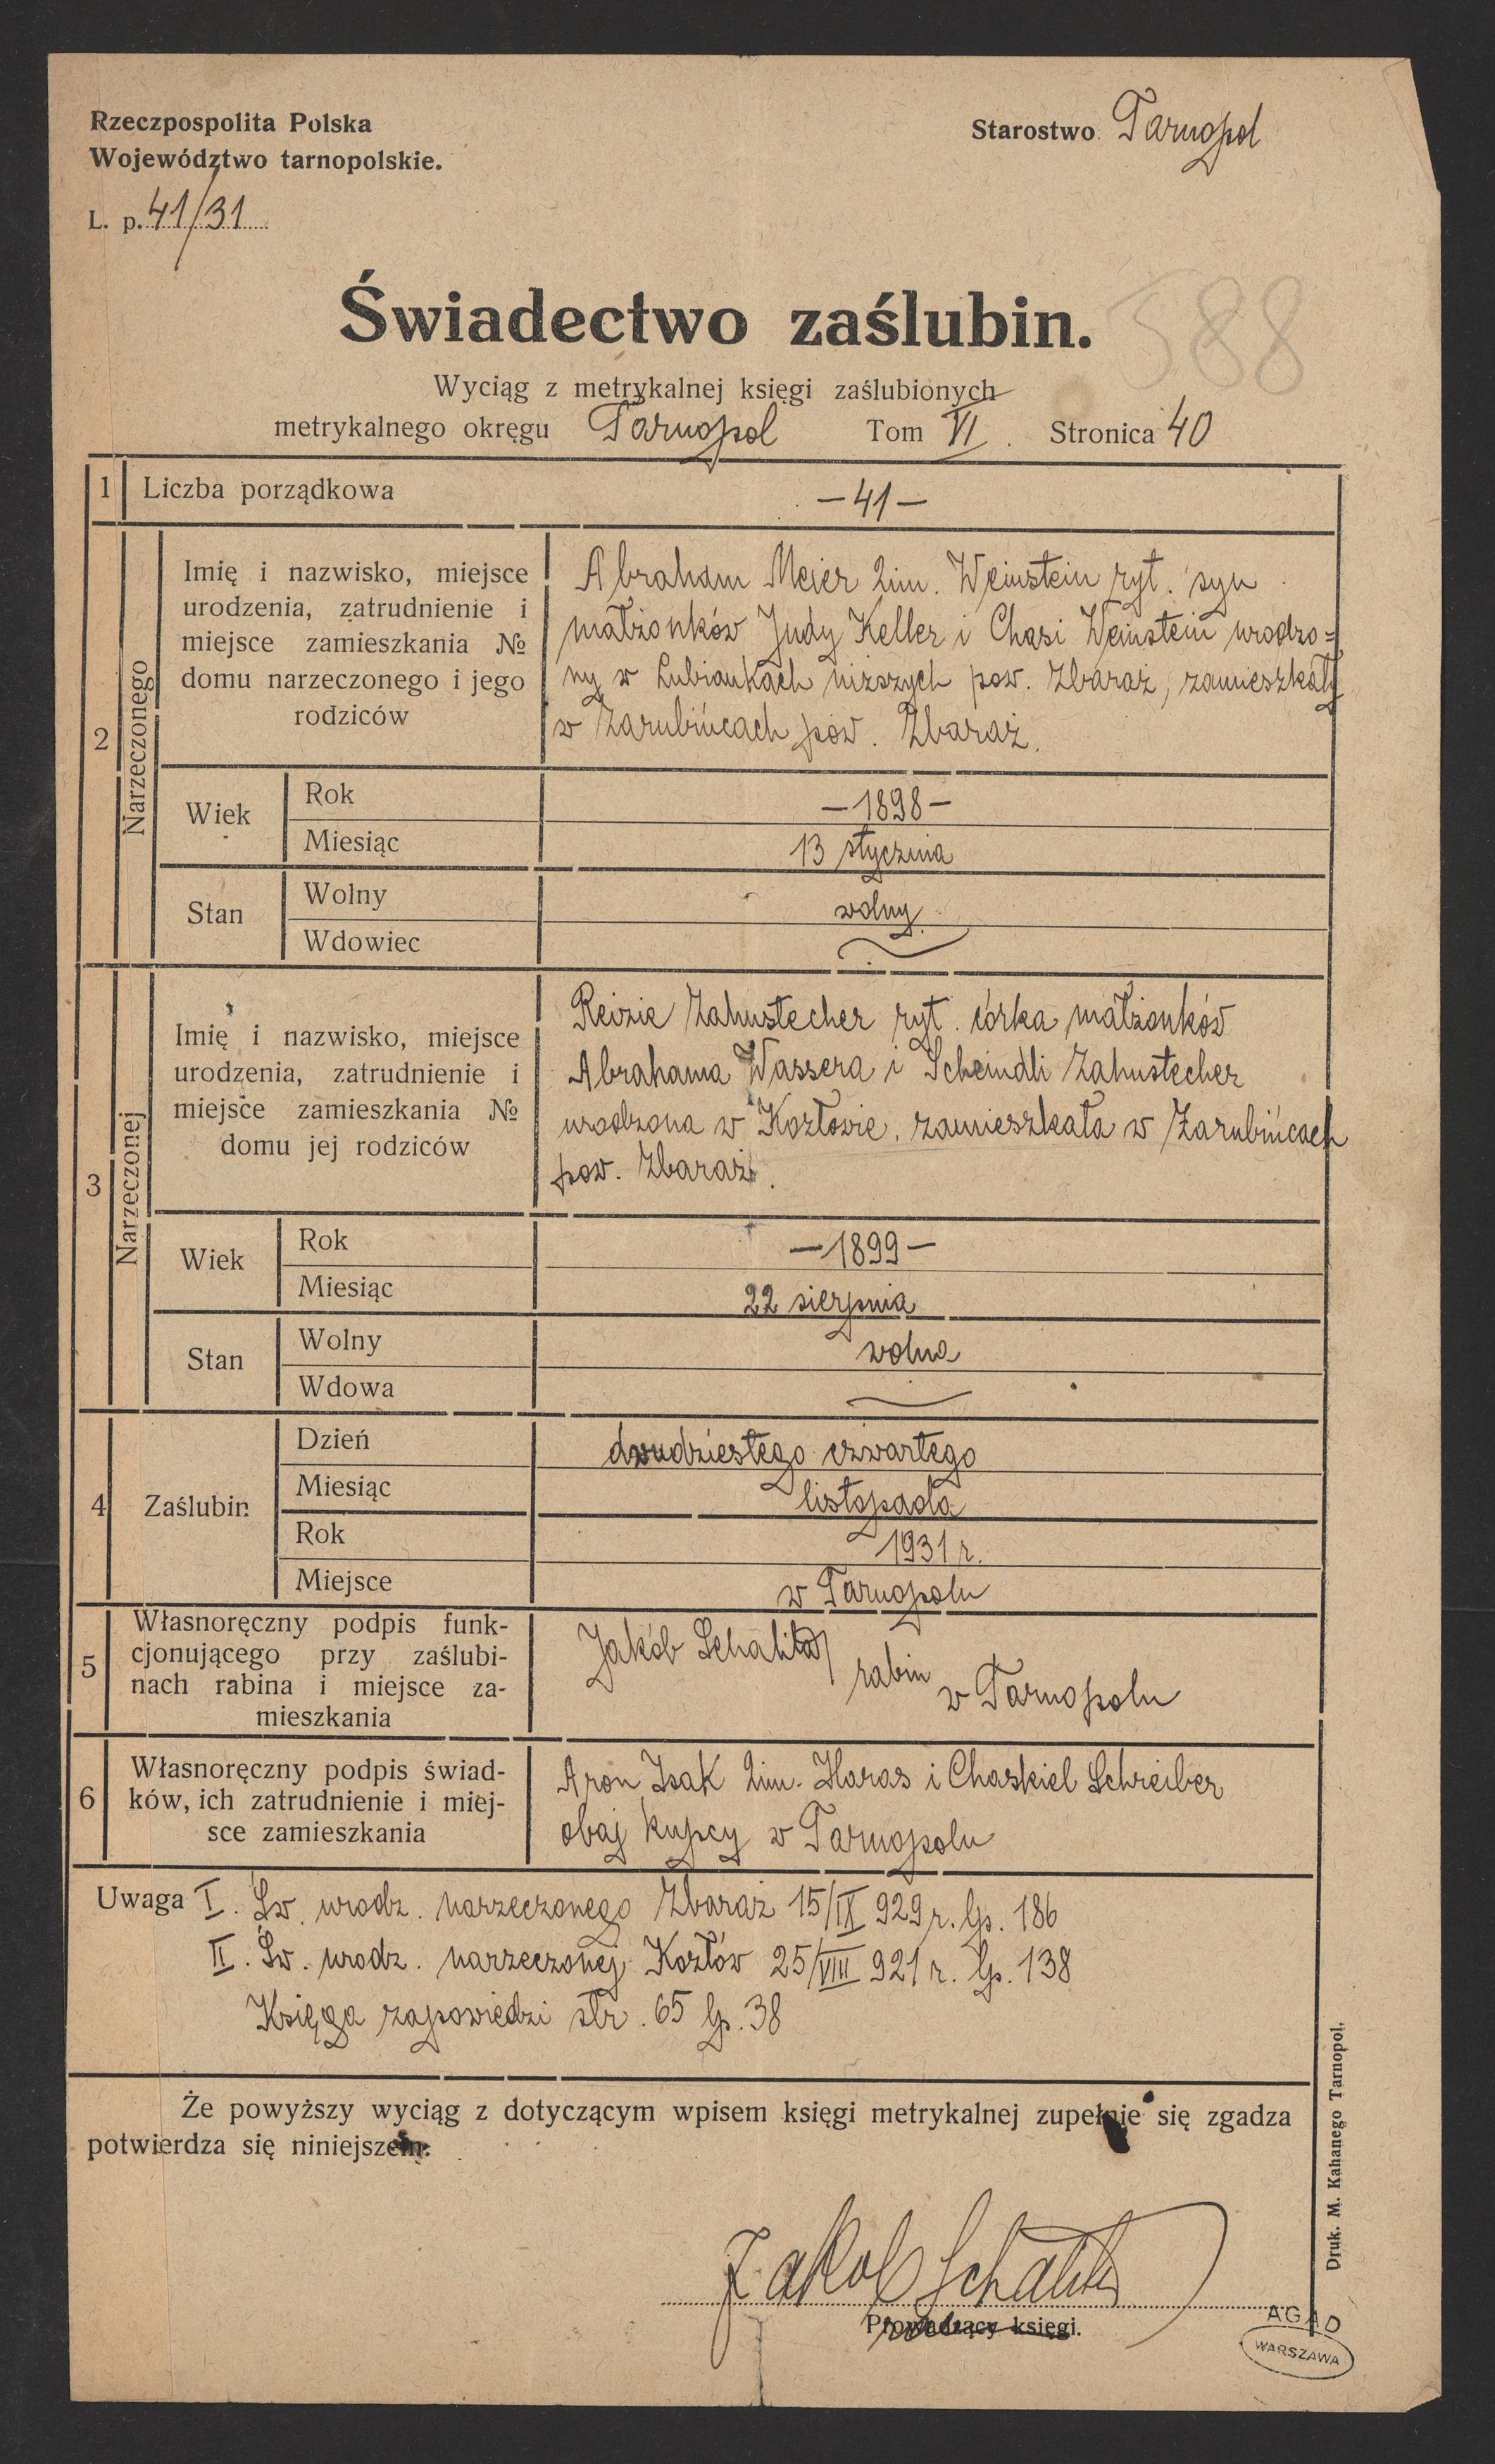 Rzeczpospolita Polska
Województwo tarnopolskie.
Starostwo Tarnopol
L. p. 41/31
588
Świadectwo zaślubin.
Wyciąg z metrykalnej księgi zaślubionych
metrykalnego okręgu Tarnopol Tom VI. Stronica 40
1 Liczba porządkowa
— 41 —
2
Narzeczonego
Imię i nazwisko, miejsce
urodzenia, zatrudnienie i
miejsce zamieszkania №
domu narzeczonego i jego
rodziców
Abraham Meier 2im. Weinstein ryt. syn
małżonków Judy Keller i Chasi Weinstein urodzo=
ny w Lubiankach niższych pow. Zbaraż, zamieszkały
w Zarubińcach pow. Zbaraż.
Wiek
Rok
— 1898 —
Miesiąc
13 stycznia
Stan
Wolny
wolny
Wdowiec
3
Narzeczonej
Imię i nazwisko, miejsce
urodzenia, zatrudnienie i
miejsce zamieszkania №
domu jej rodziców
Reizie Zahnstecher ryt. córka małżonków
Abrahama Wassera i Scheindli Zahnstecher
urodzona w Kozłowie, zamieszkała w Zarubińcach
pow. Zbaraż.
Wiek
Rok
— 1899 —
Miesiąc
22 sierpnia
Stan
Wolny
wolna
Wdowa
4 Zaślubin
Dzień
dwudziestego czwartego
Miesiąc
listopada
Rok
1931 r.
Miejsce
w Tarnopolu
5
Własnoręczny podpis funk-
cjonującego przy zaślubi-
nach rabina i miejsce za-
mieszkania
Jakób Schalita rabin w Tarnopolu
6
Własnoręczny podpis świad-
ków, ich zatrudnienie i miej-
sce zamieszkania
Aron Isak 2im. Haras i Chaskiel Schreiber
obaj kupcy w Tarnopolu
Uwaga I. Św. urodz. narzeczonego Zbaraż 15/IX 929 r. lp. 186
II. Św. urodz. narzeczonej Kozłów 25/VIII 921 r. lp. 138
Księga zapowiedzi str. 65 lp. 38
Że powyższy wyciąg z dotyczącym wpisem księgi metrykalnej zupełnie się zgadza
potwierdza się niniejszem.
Jakob Schalita
Prowadzący księgi.
Druk. M. Kahanego Tarnopol.
AGAD
WARSZAWA